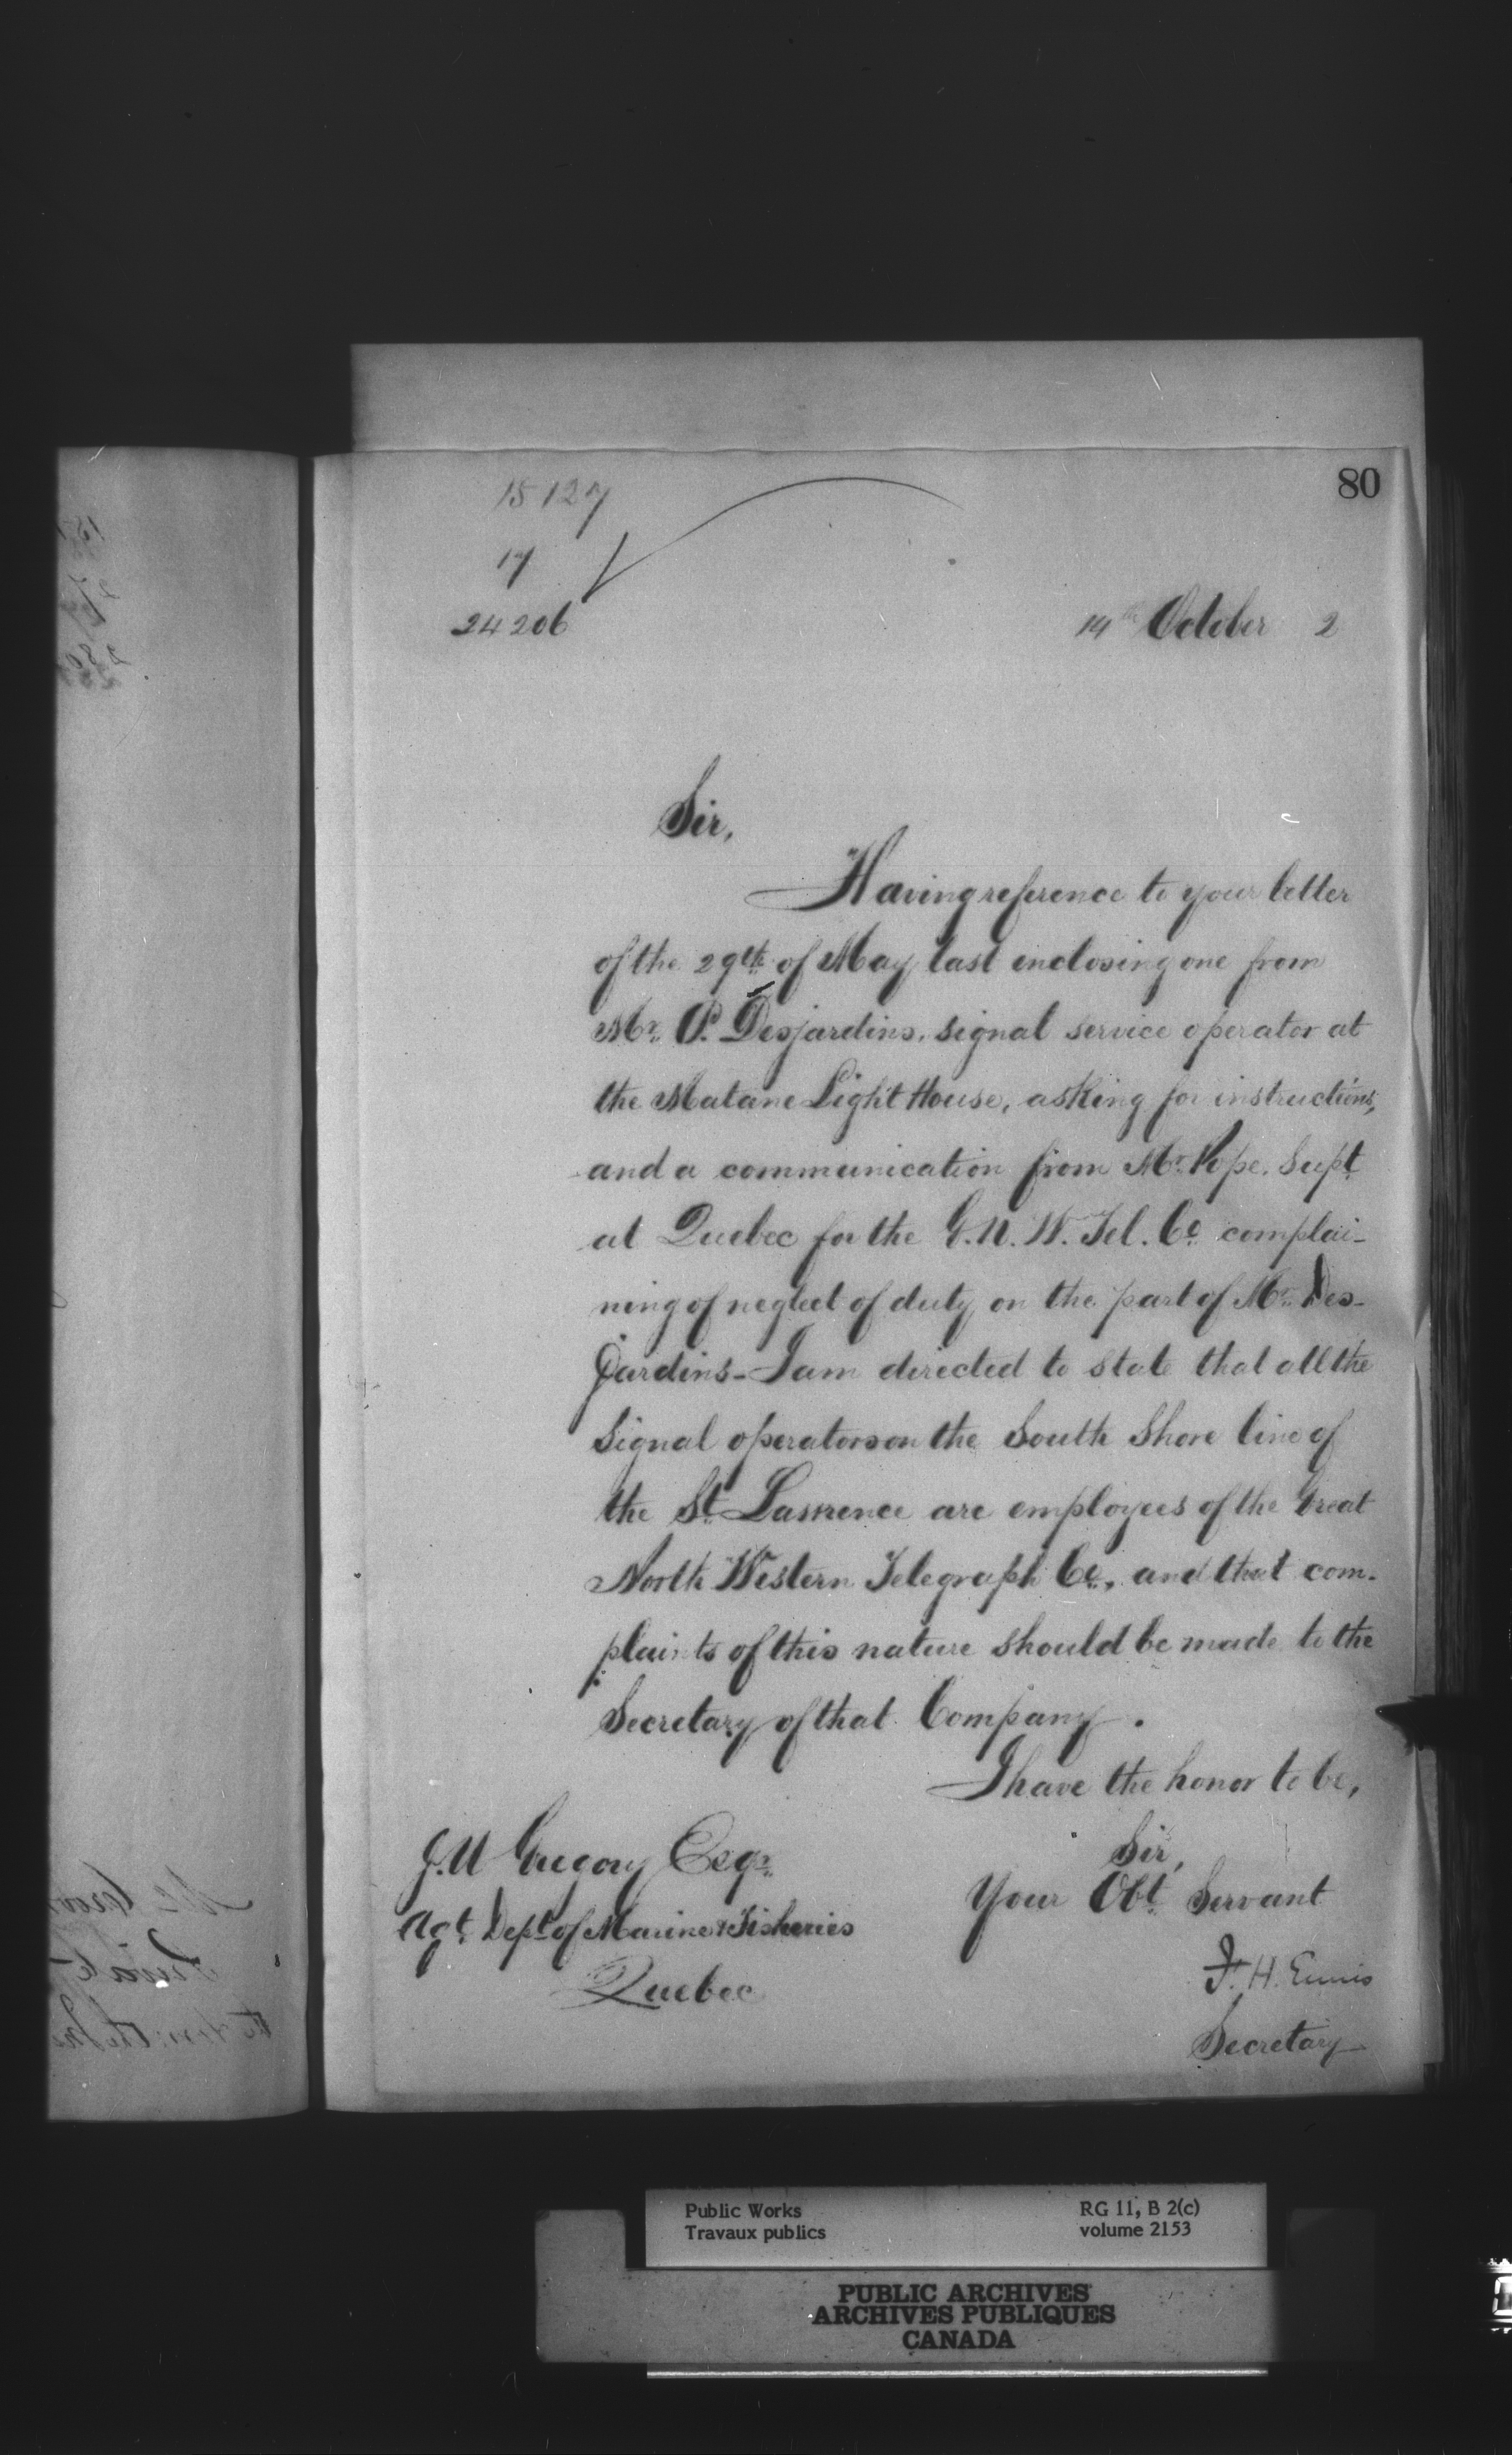 80
15127
17
24206
14th October 2
Sir,
Having reference to your letter
of the 29th of May last enclosing one from
Mr. P. Desjardins, signal service operator at
the Matane Light House, asking for instructions,
and a communication from Mr. Pope. Supt.
at Quebec for the G. N. W. Tel. Co. complai-
ning of neglect of duty on the part of Mr. Des-
Jardins - I am directed to state that all the
Signal operators on the South Shore line of
the St. Lawrence are employees of the Great
North Western Telegraph Co., and that com-
plaints of this nature should be made to the
Secretary of that Company.
I have the honor to be,
Sir,
Your Obt. Servant
F. H. Ennis
Secretary
J. U Gregory Esqr.
Agt. Dept. of Marine & Fisheries
Quebec
Public Works
Travaux publics
RG 11, B 2(c)
volume 2153
PUBLIC ARCHIVES
ARCHIVES PUBLIQUES
CANADA